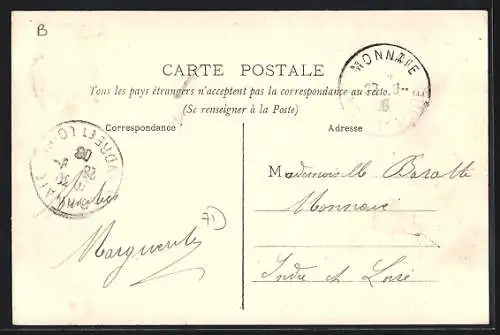 B
MONNAIE
CARTE POSTALE
Tous les pays étrangers n'acceptent pas la correspondance au recto.
(Se renseigner à la Poste)
Correspondance
Adresse
INDRE ET LOIRE
Mademoiselle
Monnaie
71
Marguerite
Indre et Loire